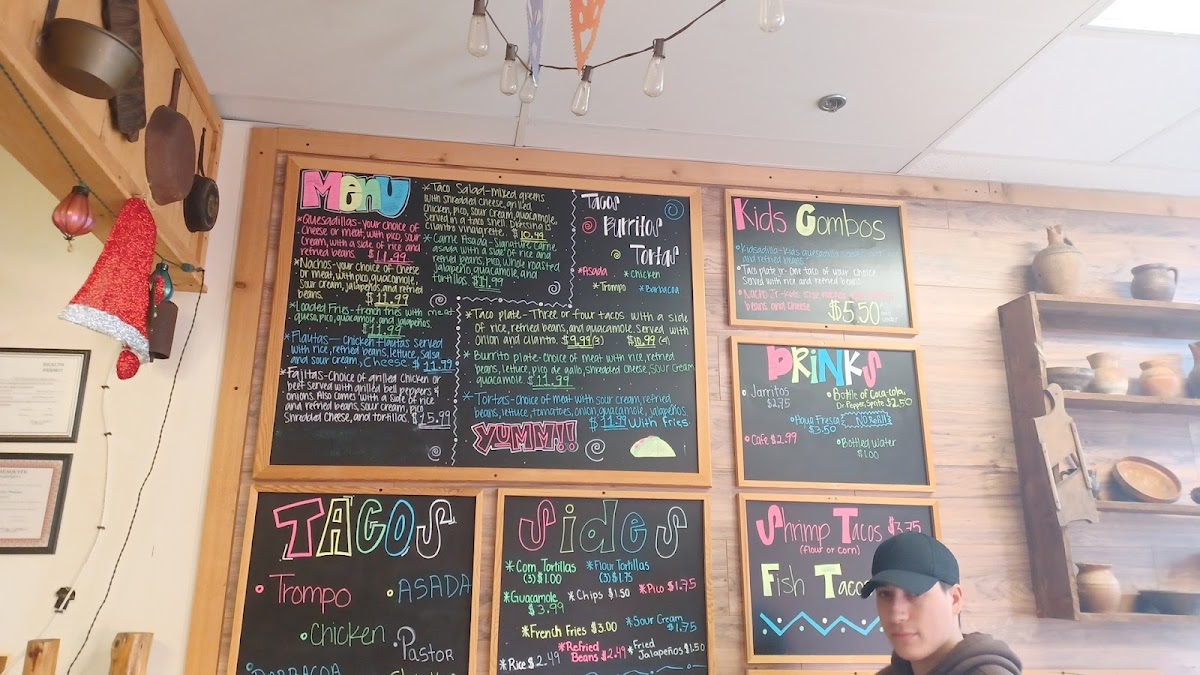 Menu
*Quesadillas-your choice of
cheese or meat, with pico, sour
cream, with a side of rice and
refried beans. $11.99
*Nachos-your choice of cheese
or meat, with pico, guacamole,
sour cream, jalapeños, and refried
beans. $11.99
*Loaded Fries-french fries with meat
queso, pico, guacamole, and jalapeños.
$11.99
*Flautas-Chicken flautas served
with rice, refried beans, lettuce, salsa
and sour cream, cheese $11.99
*Fajitas-Choice of grilled chicken or
beef served with grilled bell peppers &
onions. Also comes with a side of rice
and refried beans, sour cream, pico
shredded cheese, and tortillas. $15.99
*Taco Salad-mixed greens
with shredded cheese, grilled
chicken, pico, sour cream, guacamole.
Served in a taco shell. Dressing is
cilantro vinaigrette. $10.99
*Carne Asada-Signature carne
asada with a side of rice and
refried beans, pico, whole roasted
jalapeño, guacamole, and
tortillas. $11.99
Tacos
Burritos
Tortas
*Asada *Chicken
*Trompo *Barbacoa
*Taco plate-Three or four tacos with a side
of rice, refried beans, and guacamole. Served with
onion and cilantro. $9.99(3) $10.99 (4)
*Burrito plate-choice of meat with rice, refried
beans, lettuce, pico de gallo, shredded cheese, sour cream
guacamole $11.99
*Tortas-choice of meat with sour cream, refried
beans, lettuce, tomatoes, onion, guacamole, jalapeños.
$11.99 with fries
YUMM!!
Kids Combos
Kidsadilla-kids quesadilla
and refried beans
Taco plate jr-One taco of your choice
Served with rice and refried beans
Nacho Jr-kids size nachos
beans and cheese $5.50
DRINKS
Jarritos
$2.75
Bottle of Coca-cola,
Dr. Pepper, Sprite $2.50
Agua Fresca
$3.50
No Refills
Cafe $2.99
Bottled Water
$1.00
TACOS
Trompo
ASADA
Chicken
Pastor
BARBACOA
Sides
*Corn Tortillas
(3) $1.00
*Flour Tortillas
(3) $1.75
*Guacamole
$3.99
*Chips $1.50
*Pico $1.75
*French Fries $3.00
*Sour Cream
$1.75
*Rice $2.49
*Refried
Beans $2.49
*Fried
Jalapeños $1.50
Shrimp Tacos $3.75
(flour or corn)
Fish